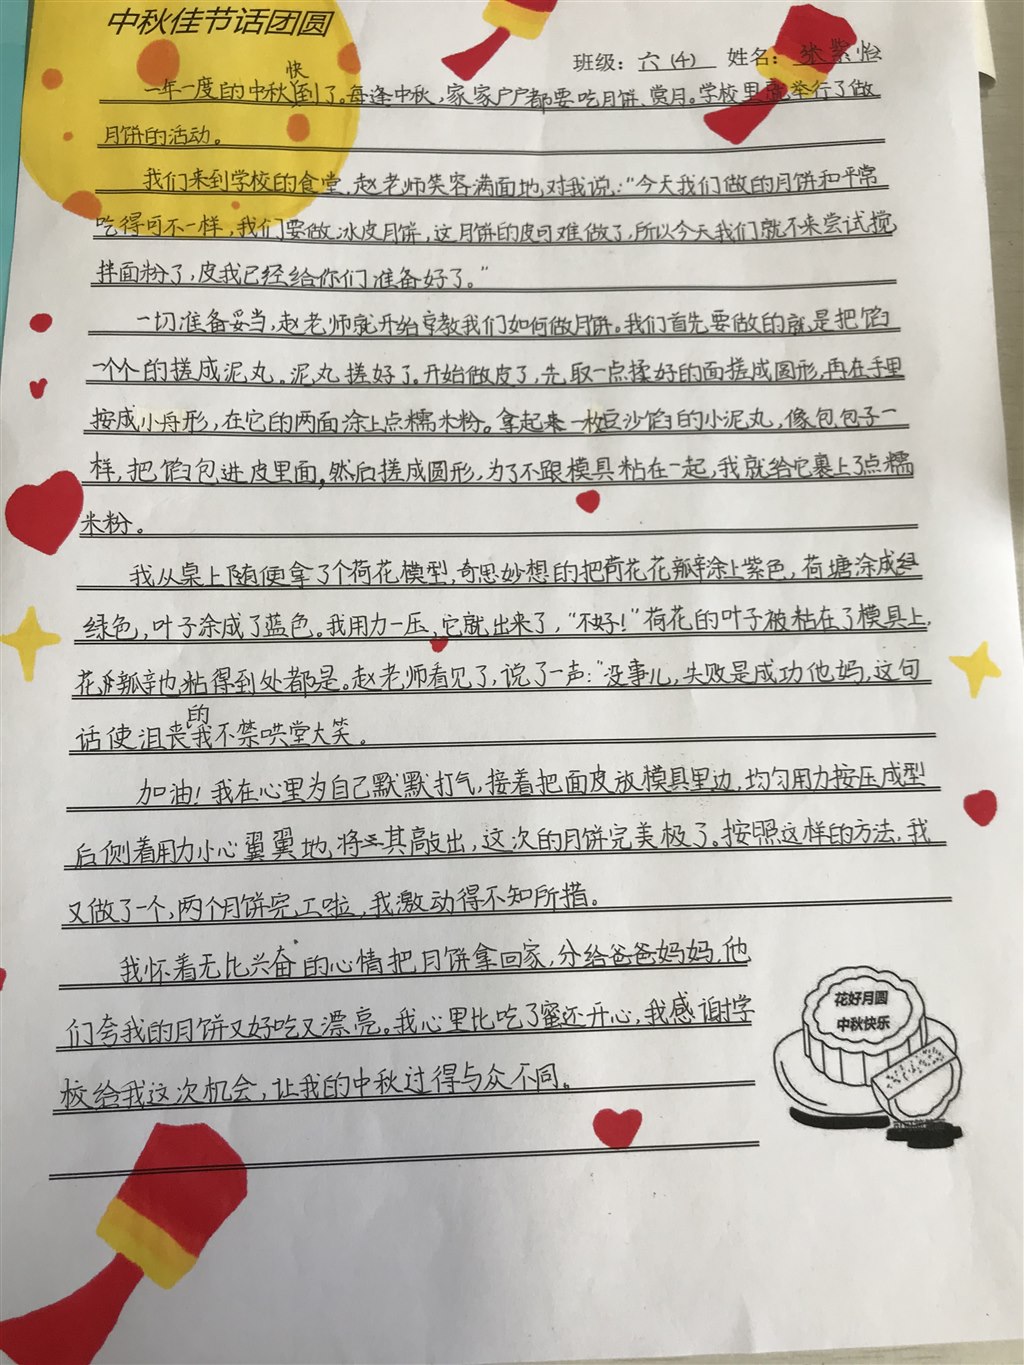 中秋佳节话团圆
班级：六（4） 姓名：张紫怡
一年一度的中秋快到了。每逢中秋，家家户户都要吃月饼、赏月。学校里就举行了做
月饼的活动。
我们来到学校的食堂，赵老师笑容满面地对我说：“今天我们做的月饼和平常
吃得可不一样，我们要做冰皮月饼，这月饼的皮可难做了，所以今天我们就不来尝试搅
拌面粉了，皮我已经给你们准备好了。”
一切准备妥当，赵老师就开始教我们如何做月饼。我们首先要做的就是把馅
一个个的搓成泥丸。泥丸搓好了。开始做皮了，先取一点揉好的面搓成圆形，再在手里
按成小舟形，在它的两面涂上点糯米粉。拿起来一枚豆沙馅的小泥丸，像包包子一
样，把馅包进皮里面，然后搓成圆形，为了不跟模具粘在一起，我就给它裹上了点糯
米粉。
我从桌上随便拿了个荷花模型，奇思妙想的把荷花花瓣涂上紫色，荷塘涂成
绿色，叶子涂成了蓝色。我用力一压，它就出来了，“不好！”荷花的叶子被粘在了模具上，
花瓣也粘得到处都是。赵老师看见了，说了一声：“没事儿，失败是成功他妈，这句
话使沮丧的我不禁哄堂大笑。
加油！我在心里为自己默默打气，接着把面皮放模具里边，均匀用力按压成型
后侧着用力小心翼翼地将其敲出，这次的月饼完美极了。按照这样的方法，我
又做了一个，两个月饼完工啦，我激动得不知所措。
我怀着无比兴奋的心情把月饼拿回家，分给爸爸妈妈，他
们夸我的月饼又好吃又漂亮。我心里比吃了蜜还开心，我感谢学
校给我这次机会，让我的中秋过得与众不同。
花好月圆
中秋快乐